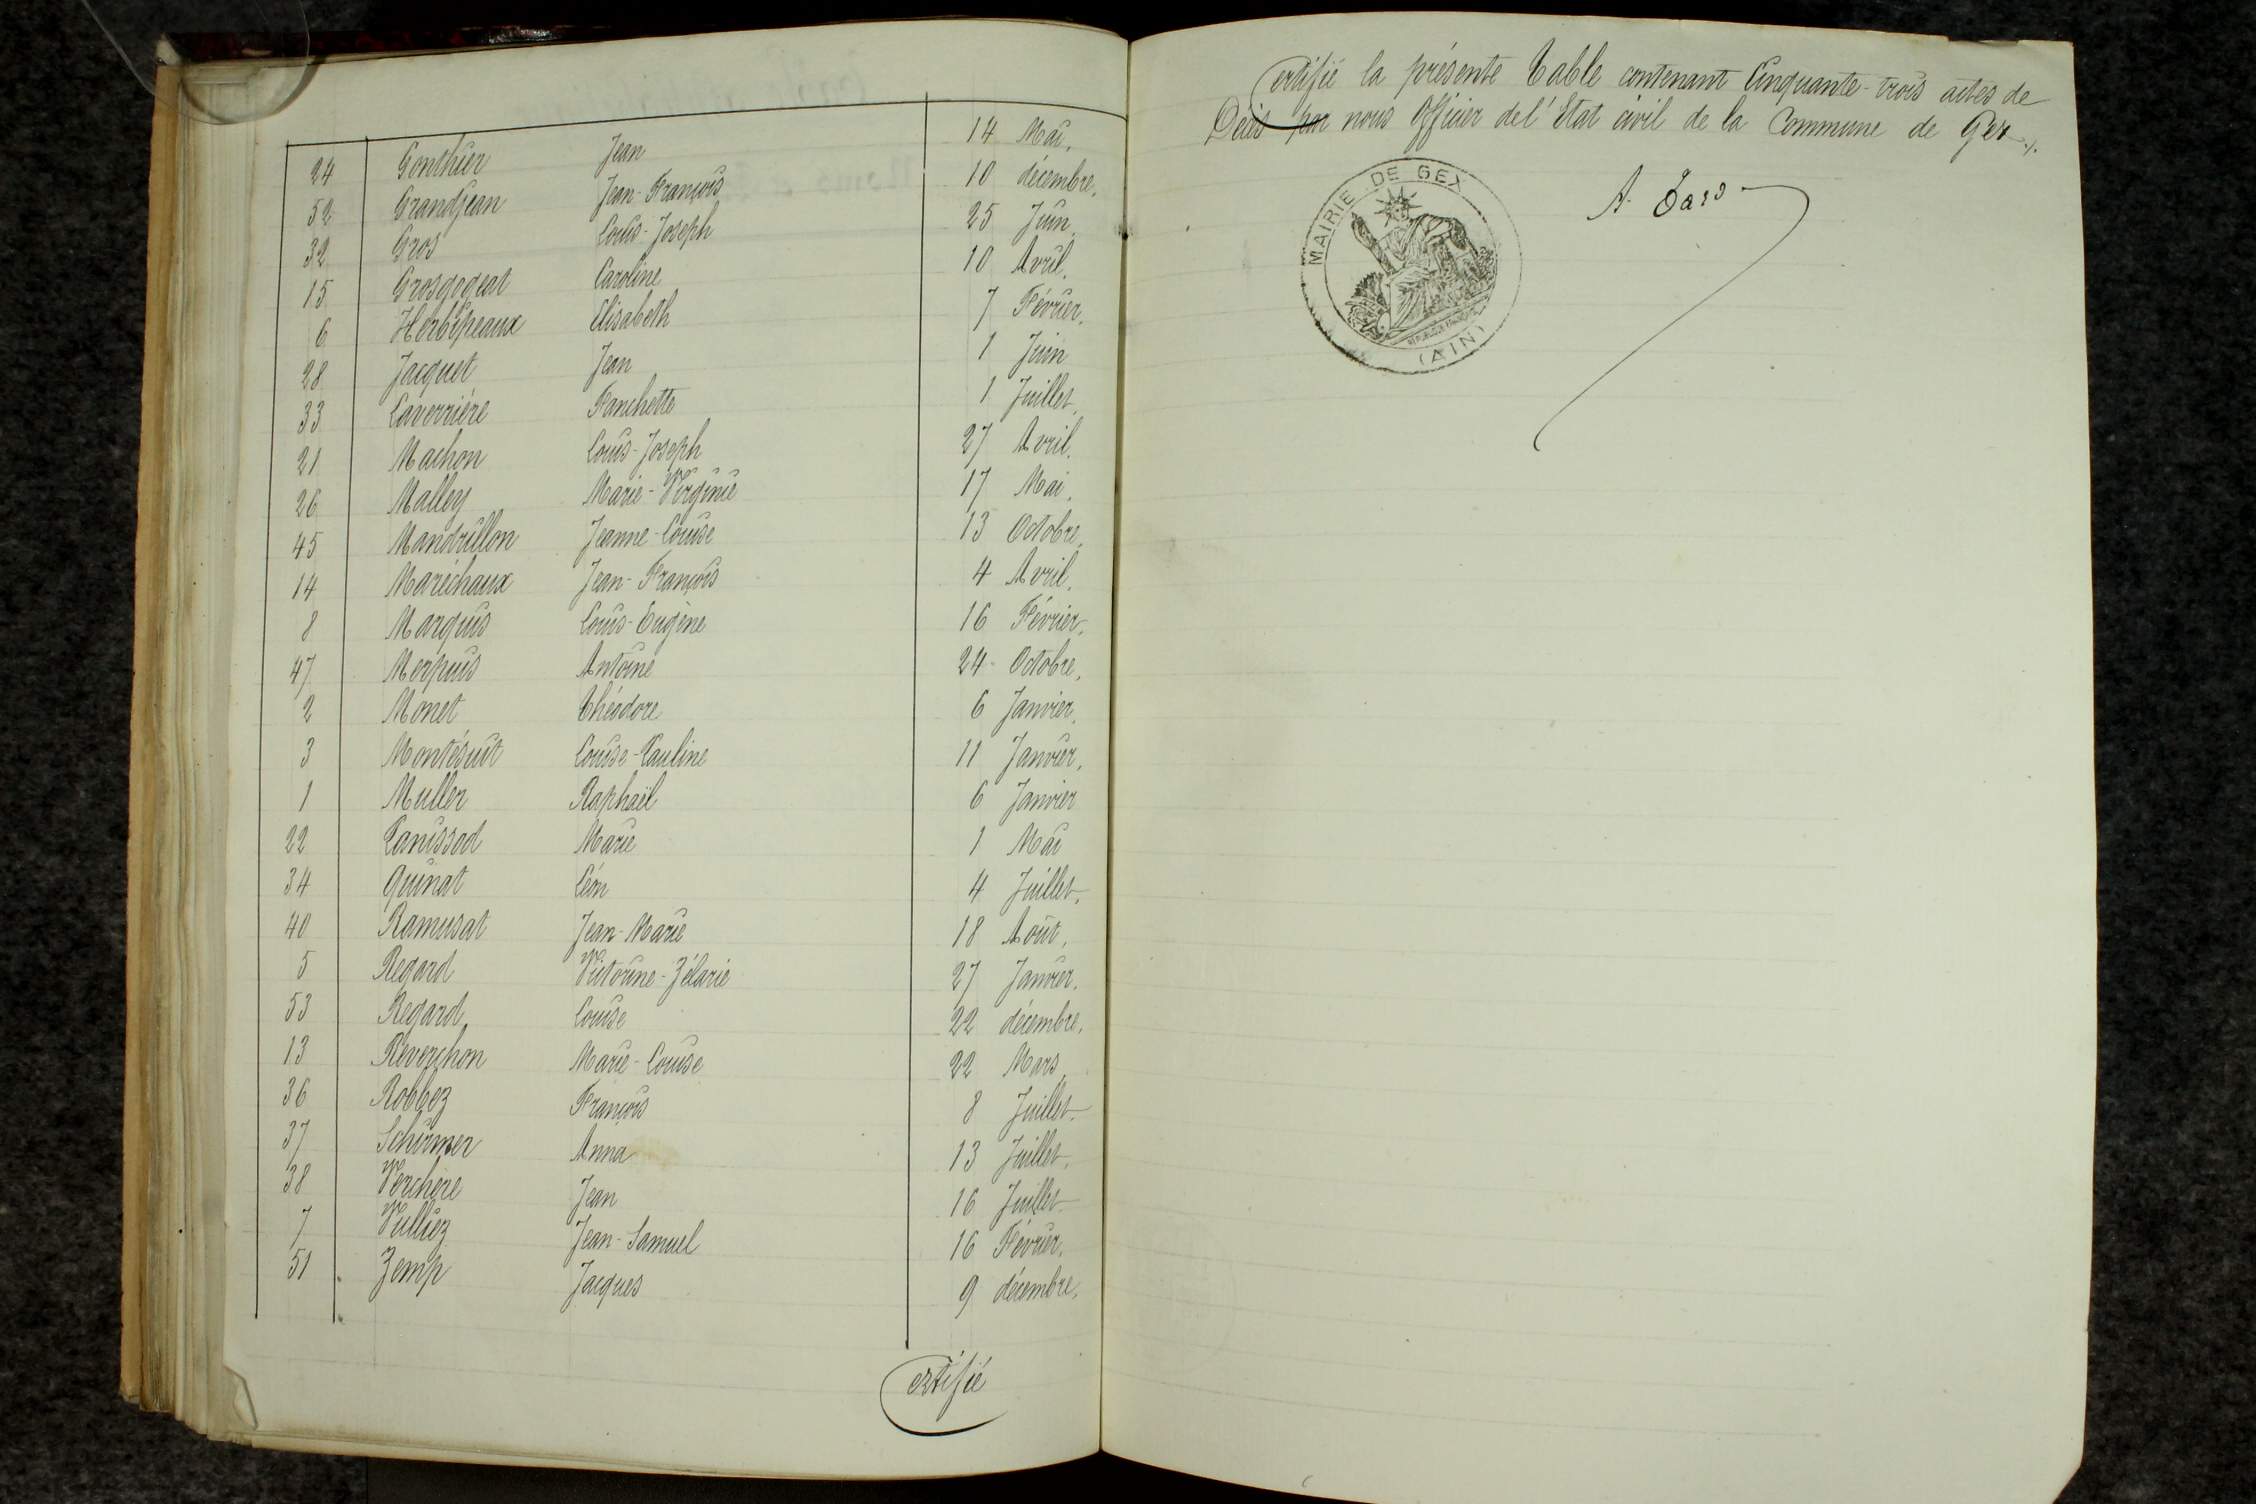 24 Gonthier Jean 14 Mai.
52 Grandjean Jean-François 10 décembre.
32 Gros Louis-Joseph 25 Juin.
15 Grosgogeat Caroline 10 Avril.
6 Herbépeaux Elisabeth 7 Février.
28 Jacquet Jean 1 Juin
33 Laverrière Fanchette 1 Juillet.
21 Machon Louis-Joseph 27 Avril.
26 Malley Marie-Virginie 17 Mai.
45 Mandrillon Jeanne-Louise 13 Octobre.
14 Maréchaux Jean-François 4 Avril.
8 Marquis Louis-Eugène 16 Février.
47 Merpuis Antoine 24 Octobre.
2 Monet Théodore 6 Janvier.
3 Montésuit Louise-Pauline 11 Janvier.
1 Muller Raphaël 6 Janvier
22 Panissod Marie 1 Mai
34 Quinat Léon 4 Juillet.
40 Ramusat Jean-Marie 18 Août.
5 Regard Victorine-Zélarie 27 Janvier.
53 Regard Louise 22 décembre.
13 Reverchon Marie-Louise 22 Mars
36 Robbez François 8 Juillet
37 Schirmer Anna 13 Juillet.
38 Verchère Jean 16 Juillet
7 Vulliez Jean-Samuel 16 Février.
51 Zemp Jacques 9 décembre.
Certifié
Certifié la présente Table contenant Cinquante-trois actes de
Décès par nous Officier de l'Etat civil de la Commune de Gex./.
MAIRIE DE GEX
(AIN)